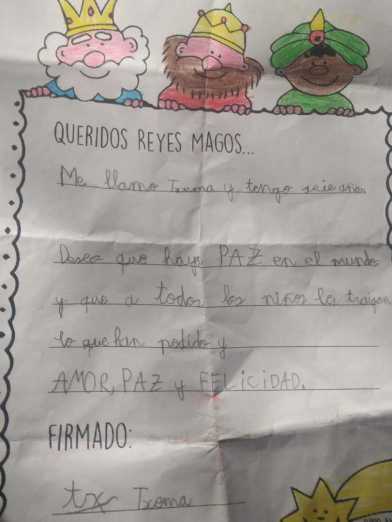 QUERIDOS REYES MAGOS...
Me llamo Txema y tengo seis años
Deseo que haya PAZ en el mundo
y que a todos los niños les traigan
lo que han pedido y
AMOR, PAZ y FELiCiDAD.
FIRMADO:
tx Txema